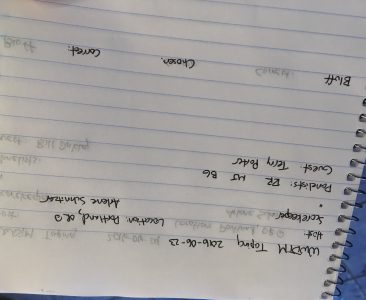 WWDTM Taping 2016-06-23
Host Location: Portland, OR
Scorekeeper Arlene Schnitzer
Panelists:
Guest Terry Porter
Bluff Chosen: Correct: